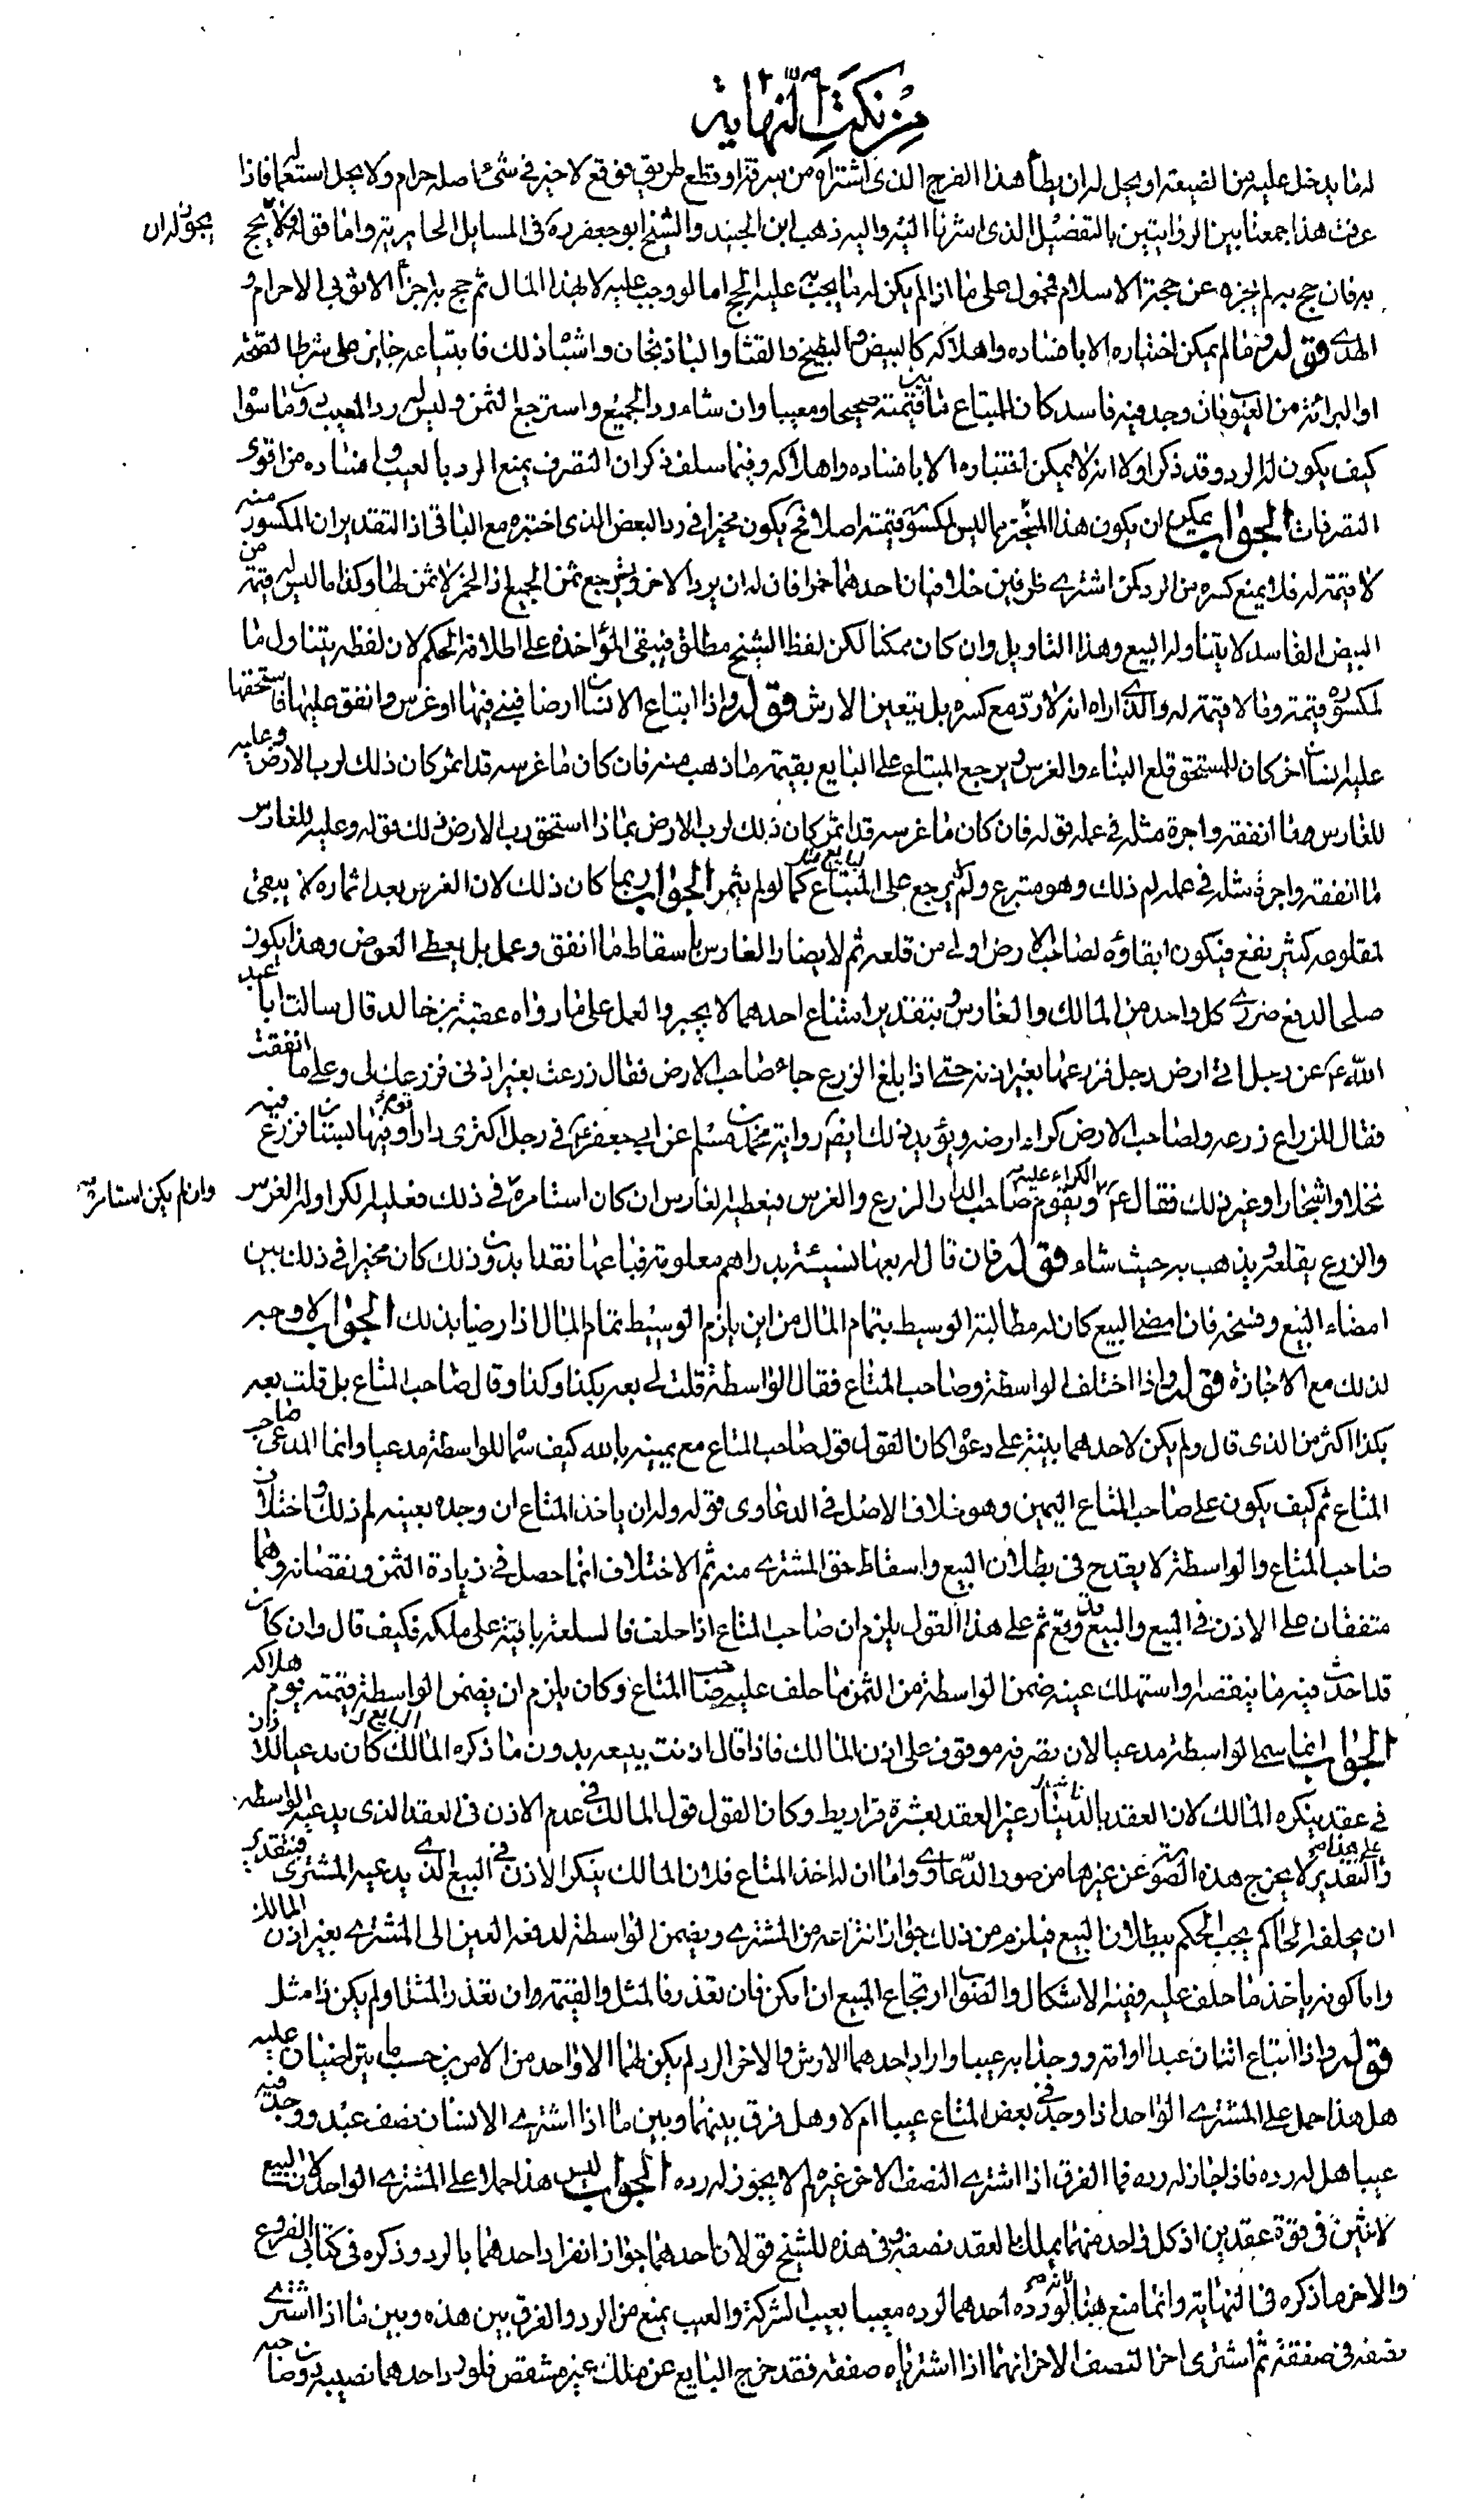 من نكت النهاية
له ما يدخل عليه من الضيعة او يحل له ان يطأ هذا الفرج الذى اشتراه من سرقة او قطع طريق فوقع لا خير فى شئ اصله حرام ولا يحل استعماله فاذا
عرفت هذا جمعنا بين الروايتين بالتفضيل الذى اشرنا اليه واليه ذهب ابن الجنيد والشيخ ابو جعفر ره فى المسايل الحايرية واما قوله ولا يجوز له ان يحج
به فان حج به لم يجزه عن حجة الاسلام فمحمول على ما اذا لم يكن له ما يجب به عليه الحج اما لو وجب عليه لا بهذا المال ثم حج به اجزأ الا فى الاحرام و
الهدى قوله فى ما لم يمكن اختباره الا بافساده واهلاكه كالبيض والبطيخ والقثا والباذنجان واشباه ذلك فابتياعه جايز على شرط الصحة
او البرائة من العيوب فان وجد فيه فاسد كان للمبتاع ما بين قيمته صحيحا ومعيبا وان شاء رد الجميع واسترجع الثمن وليس له رد المعيب دون ما سواه
كيف يكون له الرد وقد ذكر اولا انه لا يمكن اختباره الا بافساده واهلاكه وفيما سلف ذكر ان التصرف يمنع الرد بالعيب وافساده من اقوى
التصرفات الجواب يمكن ان يكون هذا التخيير بما ليس لمكسوره قيمته اصلا فح يكون مخيرا فى رد البعض الذى اختبره مع الباقى اذ التقدير ان المكسور منه
لا قيمة له فلا يمنع كسره من الرد كمن اشترى ظرفين خلا فبان احدهما خمرا فان له ان يرد الاخر ويسترجع ثمن الجميع اذ الخمر لا ثمن لها وكذا ما ليس له قيمة من
البيض الفاسد لا يتناوله البيع وهذا التاويل وان كان ممكنا لكن لفظ الشيخ مطلق فيبقى المؤاخذة على اطلاقه الحكم لان لفظه يتناول ما
لمكسوره قيمة وما لا قيمة له والذى اراه انه لا رد مع كسره بل يتعين الارش قوله واذا ابتاع الانسان ارضا فبنى فيها او غرس وانفق عليها فاستحقها
عليه انسان اخر كان للمستحق قلع البناء والغرس ويرجع المبتاع على البايع بقيمة ما ذهب منه فان كان ما غرسه قد اثمر كان ذلك لرب الارض وعليه
للغارس ما انفقه واجرة مثله فى عمله قوله فان كان ما غرسه قد اثمر كان ذلك لرب الارض بماذا استحق رب الارض ذلك قوله وعليه للغارس
ما انفقه واجرة مثله فى عمله لم ذلك وهو متبرع ولم لم يرجع على البايع المبتاع كما لو لم يثمر الجواب ربما كان ذلك لان الغرس بعد اثماره لا يبقى
لمقلوعه كثير نفع فيكون ابقاؤه لصاحب الارض اولى من قلعه ثم لا يضار الغارس باسقاط ما انفق وعمل بل يعطى العوض وهذا يكون
صلحا لدفع ضرر كل واحد من المالك والغارس وبتقدير امتناع احدهما لا يجبر والعمل على ما رواه عقبة بن خالد قال سالت ابا عبد
الله ع عن رجل اتى ارض رجل فزرعها بغير اذنه حتى اذا بلغ الزرع جاء صاحب الارض فقال زرعت بغير اذنى فزرعك لى وعلى ما انفقت
فقال للزراع زرعه ولصاحب الارض كراء ارضه ويؤيد ذلك ايضا رواية محمد بن مسلم عن ابى جعفر ع فى رجل اكترى دارا وفيها بستان فزرع فيه
نخلا واشجارا وغير ذلك فقال ع عليه الكراء ويقوم صاحب الدار الزرع والغرس فيعطيه الغارس ان كان استامره فى ذلك وان لم يكن استامره فعليه الكراء وله الغرس
والزرع يقلعه ويذهب به حيث شاء قوله فان قال له بعها نسيئة بدراهم معلومة فباعها نقدا بدون ذلك كان مخيرا فى ذلك بين
امضاء البيع وفسخه فان امضى البيع كان له مطالبة الوسيط بتمام المال من اين يلزم الوسيط تمام المال اذا رضيا بذلك الجواب لا وجه
لذلك مع الاجازة قوله واذا اختلف الواسطة وصاحب المتاع فقال الواسطة قلت لى بعه بكذا وكذا وقال صاحب المتاع بل قلت بعه
بكذا اكثر من الذى قال ولم يكن لاحدهما بينة على دعواه كان القول قول صاحب المتاع مع يمينه بالله كيف سما للواسطة مدعيا وانما المدعى صاحب
المتاع ثم كيف يكون على صاحب المتاع اليمين وهو خلاف الاصل فى الدعاوى قوله وله ان ياخذ المتاع ان وجده بعينه لم ذلك واختلاف
صاحب المتاع والواسطة لا يقدح فى بطلان البيع واسقاط حق المشترى منه ثم الاختلاف انما حصل فى زيادة الثمن ونقصانه وهما
متفقان على الاذن فى البيع والبيع قد وقع ثم على هذا القول يلزم ان صاحب المتاع اذا حلف فالسلعة باقية على ملكه فكيف قال وان كان
قد احدث فيه ما ينقصه او استهلك عينه ضمن الواسطة من الثمن ما حلف عليه صاحب المتاع وكان يلزم ان يضمن الواسطة قيمته يوم هلاكه
الجواب انما سمى الواسطة مدعيا لان تصرفه موقوف على اذن المالك فاذا قال اذنت ببيعه بدون ما ذكره المالك كان مدعيا للاذن
فى عقد ينكره المالك لان العقد بالدينار غير العقد بعشرة قراريط وكان القول قول المالك فى عدم الاذن فى العقد الذى يدعيه الواسطة
وعلى هذا التقدير لا يخرج هذه الصورة عن غيرها من صور الدعاوى واما ان له اخذ المتاع فلان المالك ينكر الاذن فى البيع الذى يدعيه المشترى فبتقدير
ان يحلفه الحاكم يجب الحكم ببطلان البيع فيلزم من ذلك جواز انتزاعه من المشترى ويضمن الواسطة لدفعه العين الى المشترى بغير اذن المالك
واما كونه ياخذ ما حلف عليه ففيه الاشكال والصواب ارتجاع المبيع ان امكن فان تعذر فالمثل والقيمة وان تعذر المثل او لم يكن ذا مثل
قوله واذا ابتاع اثنان عبدا او امة ووجدا به عيبا واراد احدهما الارش والاخر الرد لم يكن لهما الا واحد من الامرين حسب ما يتراضيان عليه
هل هذا حمل على المشترى الواحد اذا وجد فى بعض المتاع عيبا ام لا وهل فرق بينهما وبين ما اذا اشترى الانسان نصف عبد ووجد فيه
عيبا هل له رده فاذا جاز له رده فما الفرق اذا اشترى النصف الاخر غيره لم لا يجوز له رده الجواب ليس هذا حملا على المشترى الواحد لان البيع
لاثنين فى قوة عقدين اذ كل واحد منهما يملك بالعقد نصفه وفى هذه للشيخ قولان احدهما جواز انفراد احدهما بالرد وذكره فى كتابى الفروع
والاخر ما ذكره فى النهاية وانما منع هنا لانه لو رده احدهما لرده معيبا بعيب الشركة والعيب يمنع من الرد والفرق بين هذه وبين ما اذا اشترى
نصفه فى صفقة ثم اشترى اخر النصف الاخر انهما اذا اشترياه صفقة فقد خرج البايع عن ملك غير مشقص فلو رد احدهما نصيبه دون صاحبه